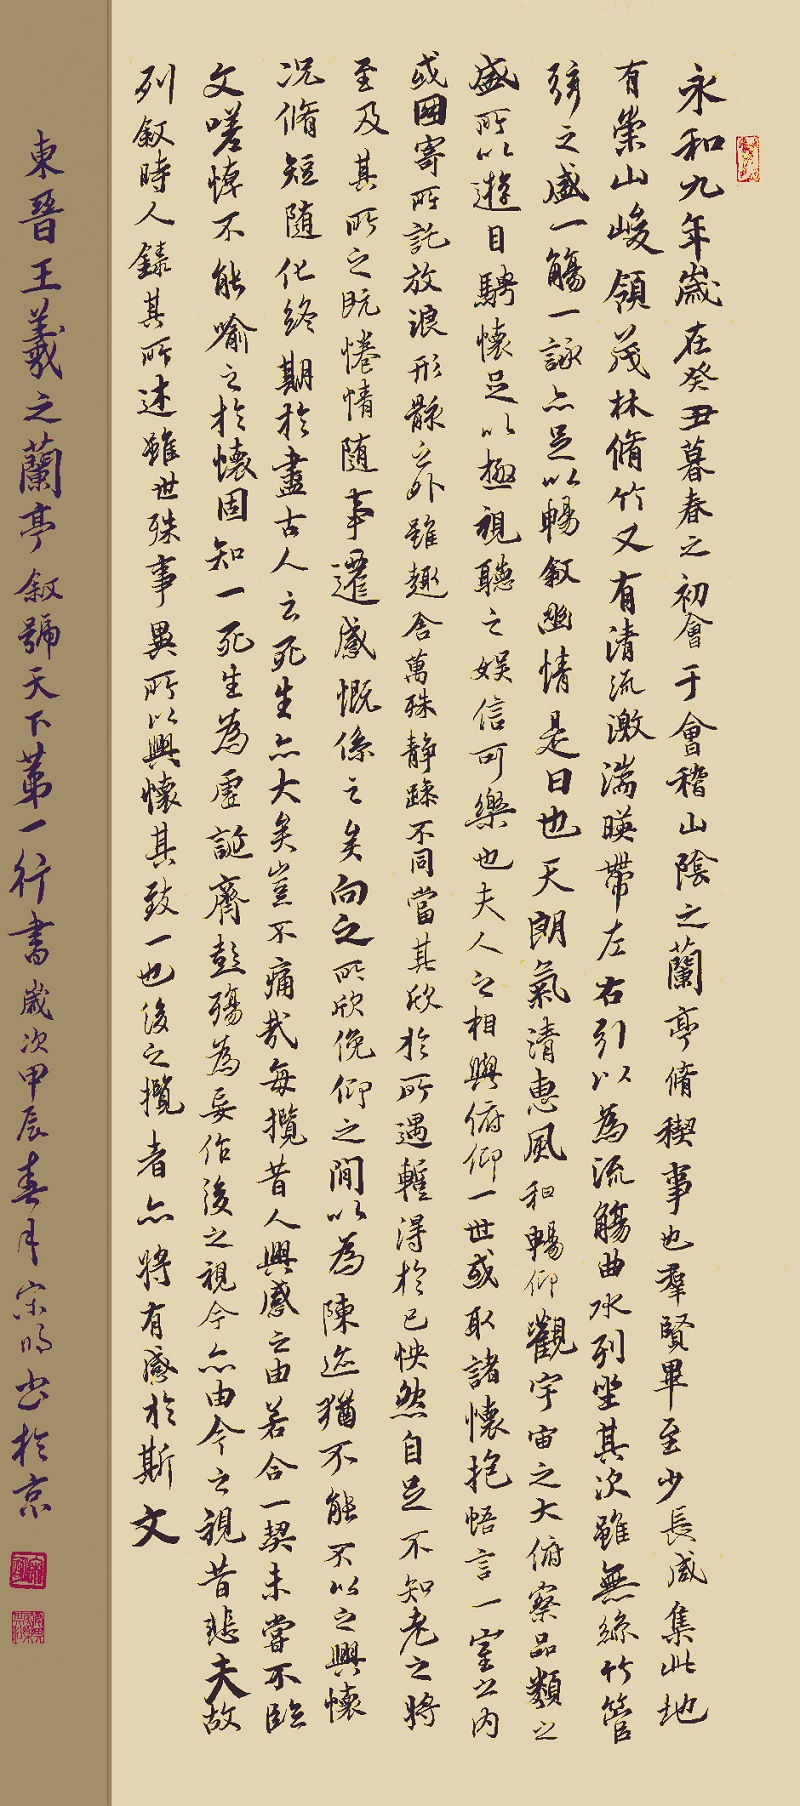 永和九年歲在癸丑暮春之初會于會稽山陰之蘭亭脩稧事也羣賢畢至少長咸集此地
有崇山峻領茂林脩竹又有清流激湍暎帶左右引以為流觴曲水列坐其次雖無絲竹管
弦之盛一觴一詠亦足以暢敘幽情是日也天朗氣清惠風和暢仰觀宇宙之大俯察品類之
盛所以遊目騁懷足以極視聽之娛信可樂也夫人之相與俯仰一世或取諸懷抱悟言一室之內
或因寄所託放浪形骸之外雖趣舍萬殊靜躁不同當其欣於所遇蹔得於己怏然自足不知老之將
至及其所之既惓情隨事遷感慨係之矣向之所欣俛仰之閒以為陳迹猶不能不以之興懷
况脩短隨化終期於盡古人云死生亦大矣豈不痛哉每攬昔人興感之由若合一契未嘗不臨
文嗟悼不能喻之於懷固知一死生為虛誕齊彭殤為妄作後之視今亦由今之視昔悲夫故
列敘時人錄其所述雖世殊事異所以興懷其致一也後之攬者亦將有感於斯文
東晉王羲之蘭亭敘號天下第一行書歲次甲辰春月宋明書於京